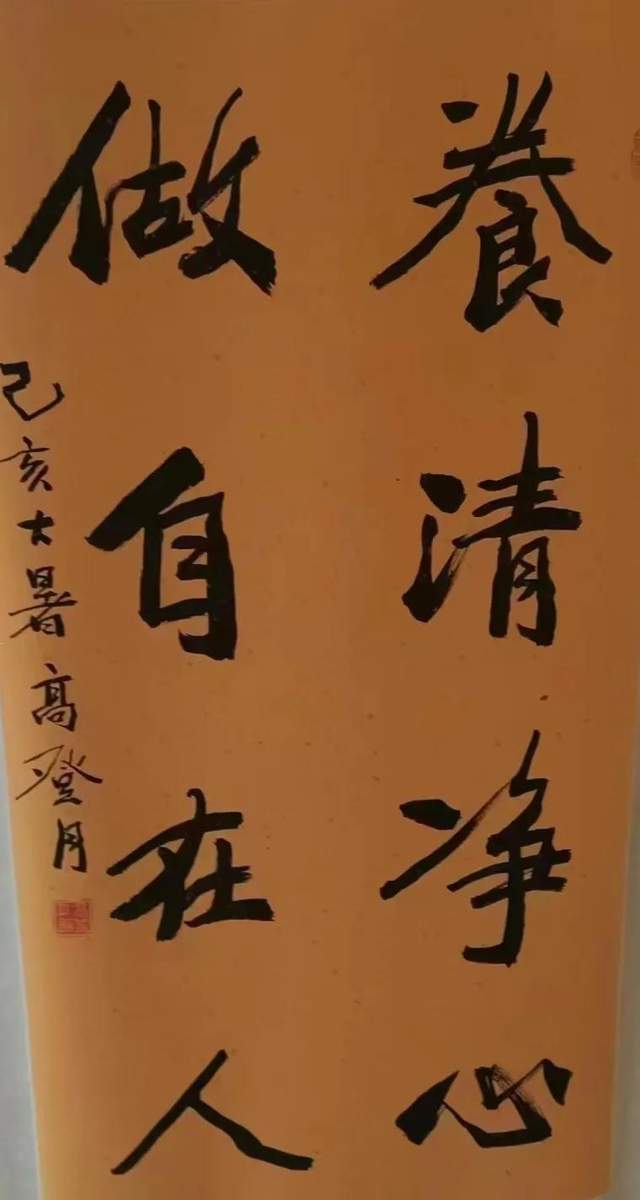 養清净心
做自在人
己亥大暑高登月